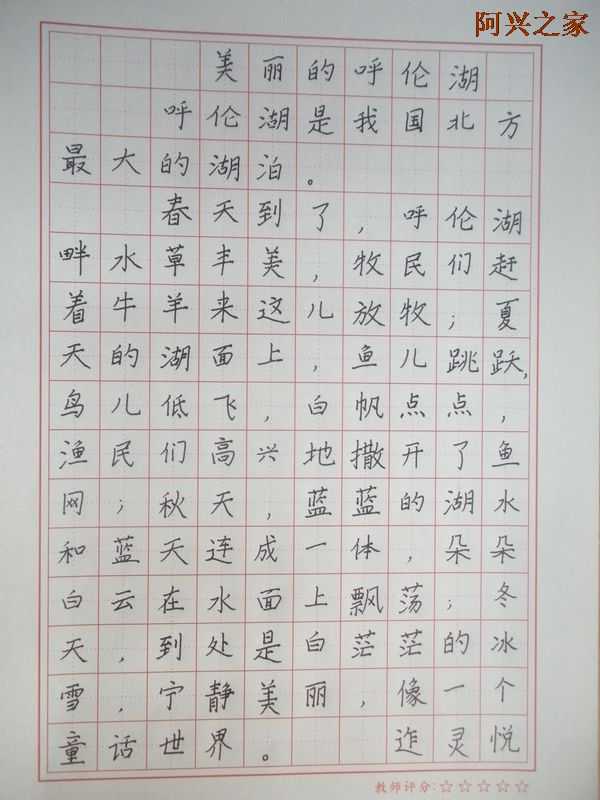 阿兴之家
美丽的呼伦湖
呼伦湖是我国北方
最大的湖泊。
春天到了，呼伦湖
畔水草丰美，牧民们赶
着牛羊来这儿放牧；夏
天的湖面上，鱼儿跳跃，
鸟儿低飞，白帆点点，
渔民们高兴地撒开了鱼
网；秋天，蓝蓝的湖水
和蓝天连成一体，朵朵
白云在水面上飘荡；冬
天，到处是白茫茫的冰
雪，宁静美丽，像一个
童话世界。 迮灵悦
教师评分：☆☆☆☆☆